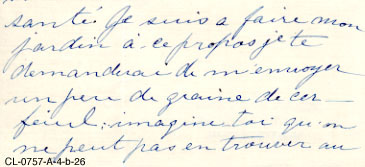 santé. Je suis a faire mon
jardin à ce propos je te
demanderai de m'envoyer
un peu de graine de cer-
feuil; imagine toi qu'on
ne peut pas en trouver au
CL-0757-A-4-b-26